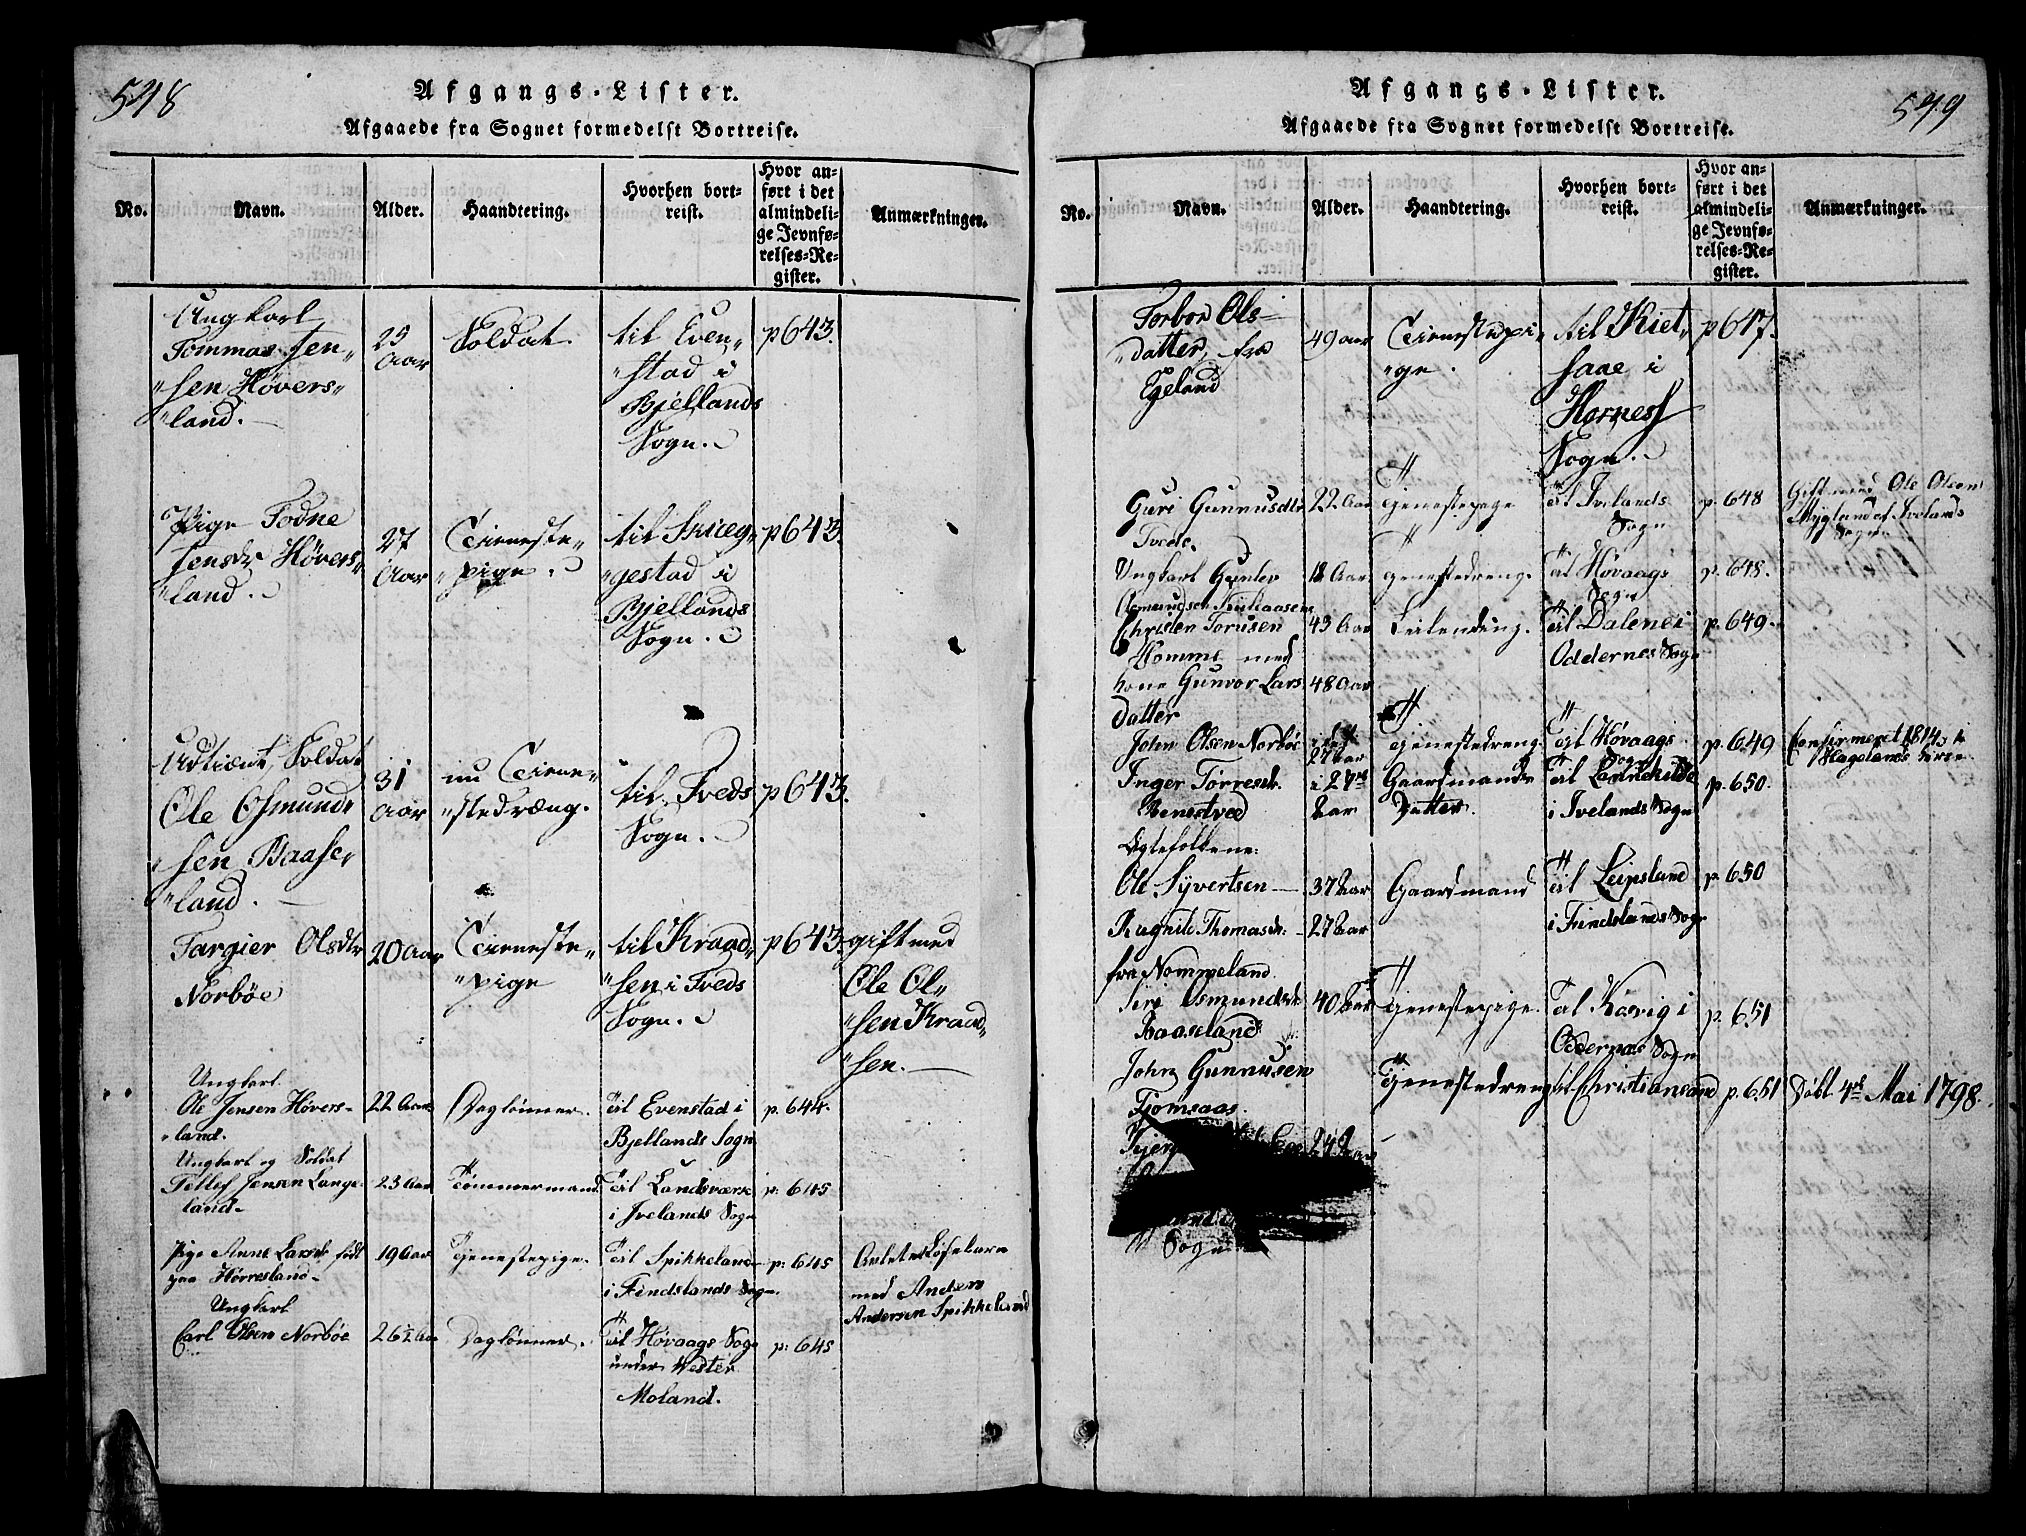 548
Afgangs-Lister.
Afgaaede fra Sognet formedelst Bortreise.
No.
Navn.
Alder.
Haandtering.
Hvorhen bort-
reist.
Hvor an-
ført i det
almindeli-
ge Jevnfø-
relses-Re-
gister.
Anmærkninger.
Ungkarl
Tommas Jen„
„sen Høvers„
„land.
25
Aar
Soldat
til Even„
„stad i
Bjellands
Sogn.
p 643.
Pige Todne
Jensdr Høvers„
„land.
27
Aar
Tieneste„
„pige.
til
„gestad i
Bjellands
Sogn.
p 643.
Udtient Soldat
Ole Osmund„
„sen Baase„
„land.
31
Aar
nu Tiene„
„stedræng.
til Tveds
Sogn.
p 643.
Targier Olsdtr
Norbøe
20 Aar
Tieneste„
„pige
til Kraad„
„sen i Tveds
Sogn.
p 643.
gift med
Ole Ol„
„sen Kraad„
„sen.
Ungkarl
Ole Jensen Høvers-
„land.
22 Aar
Daglønner.
til Evenstad i
Bjellands Sogn
p. 644.
Ungkarl og Soldat
Tellef Jensen Lange-
land.
23 Aar
Tømmermand
til Landsværk
i Ivelands Sogn
p: 645
Pige Anne Larsdr født
paa Hørresland.
19 Aar
Tjenestepige.
til Spikkeland
i Findslands Sogn.
p: 645
med Anders
Andersen Spikkeland
Ungkarl
Carl Olsen Norbøe
26½ Aar
Daglønner.
til Høvaags Sogn
under Wester
Moland.
p: 645
549
Afgangs-Lister.
Afgaaede fra Sognet formedelst Bortreise.
No.
Navn.
Alder.
Haandtering.
Hvorhen bort-
reist.
Hvor an-
ført i det
almindeli-
ge Jevnfø-
relses-Re-
gister.
Anmærkninger.
Torbor Ols-
„datter, fra
Egeland
49 aar
Tienestepi-
„ge.
til Kiet„
saae i
Horness
Sogn.
p 647.
Guri Gunnusdtr
Tvede.
22 Aar
Tjenestepige
til Ivelands
Sogn
p. 648
Gift med Ole Olsen
Mygland af Ivelands
Sogn
Ungkarl Gunlev
Osmundsen
18 Aar
Tjenestedreng.
til Høvaags
Sogn
p. 648.
Christen Torusen
Homme med
Kone Gunvor Lars
datter
43 Aar
48 Aar
til Dalene i
Oddernes Sogn
p. 649.
John Olsen Norbøe
27 Aar
Tjenestedreng
til Høvaags
Sogn
p. 649
Confirmeret 1814 i
Hægelands Kirke
Inger Tørresdr.
Benestved
i 27de
Aar
Gaardmands
Datter.
til Landekilde
i Ivelands Sogn
p. 650.
Ægtefolkene:
Ole Syvertsen
37 Aar
Gaardmand
til Leipsland
i Findslands Sogn
p. 650
Ragnild Thomasdr.
fra Nommeland
27 Aar
Siri Osmundsdr
Baaseland
40 Aar
Tjenestepige.
til Kosvig i
Oddernæs Sogn
p. 651
John Gunnusen
Fjomsaas
Tjenestedreng
til Christiansand
p. 651
Døbt 4de Mai 1798.
24 Aar
Sogn